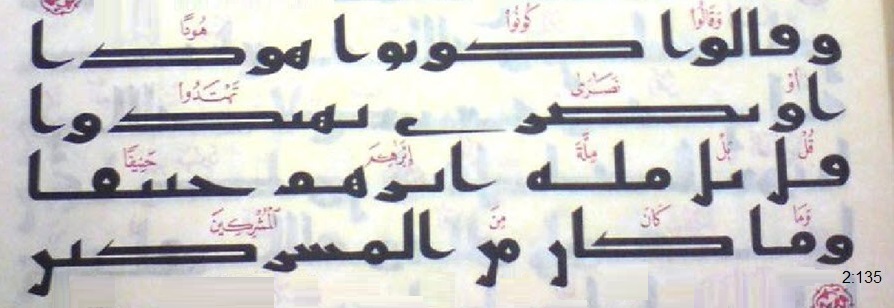 وقالوا كونوا هودا
وَقَالُوا كُونُوا هُودًا
او نصرى تهتدوا
أَوْ نَصَـٰرَىٰ تَهْتَدُوا
قل بل مله ابرهم حنيفا
قُلْ بَلْ مِلَّةَ إِبْرَٰهِـۧمَ حَنِيفًا
وما كان من المشركين
وَمَا كَانَ مِنَ ٱلْمُشْرِكِينَ
2:135